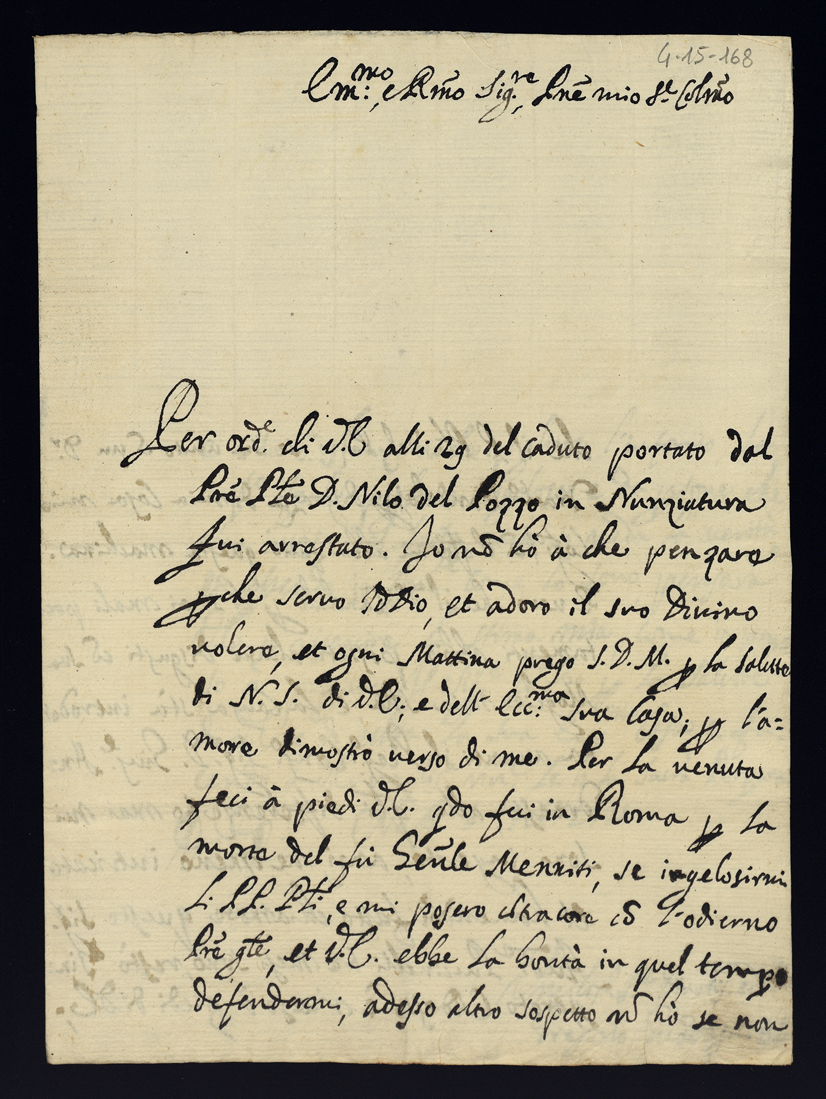 4-15-168
Em:mo, e Rm̃o Sig.re, Prñe mio Sl Colm̃o
Per ord.e di V.E. alli 29 del caduto portato dal
Prẽ Pñte D. Nilo del Pozzo in Nunziatura
fui arrestato. Io nõ hò à che penzare
pche servo Iddio, et adoro il suo Divino
volere, et ogni Mattina prego S.D.M. p la salute
di N.S. di V.E., e dell' Ecc:ma sua Casa, p l'a=
more dimostrò verso di me. Per la venuta
feci à piedi V.E. qdo fui in Roma p la
morte del fù Gẽnle Menniti, se ingelosirno
li PP. Pñti, e mi posero cõtra core cõ l'odierno
Prẽ Gñle, et V.E. ebbe la bontà in quel tempo
defendermi, adesso altro sospetto nõ hò se non